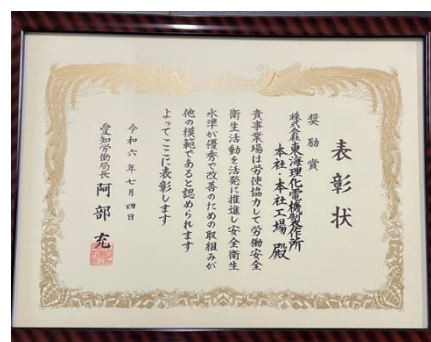 表彰状
奨励賞
株式会社東海理化電機製作所
本社・本社工場 殿
貴事業場は労使協力して労働安全
衛生活動を活発に推進し安全衛生
水準が優秀で改善のための取組みが
他の模範であると認められます
よってここに表彰します
令和六年七月四日
愛知労働局長 阿部充